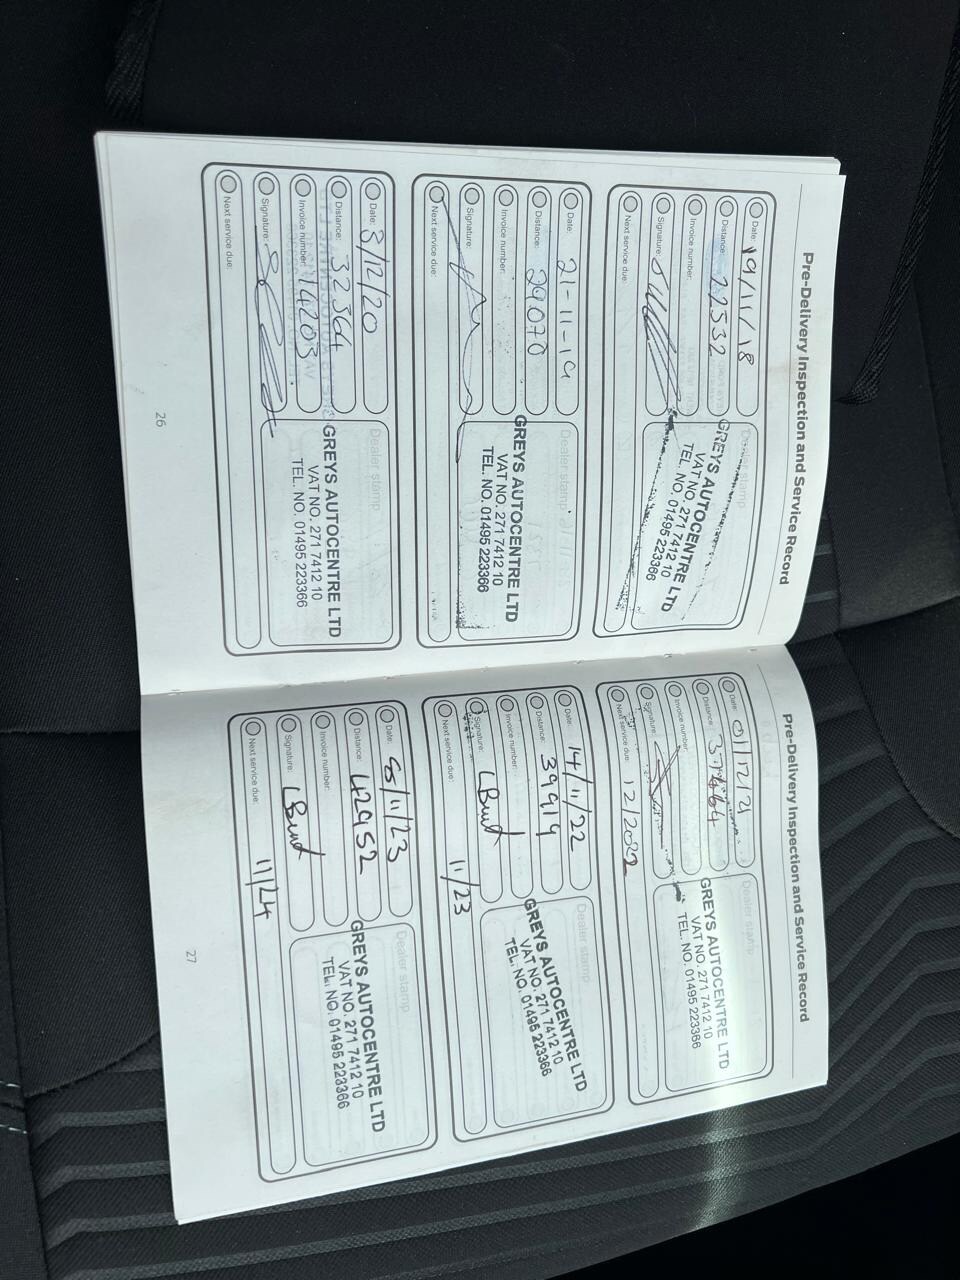 Pre-Delivery Inspection and Service Record
Date: 19/11/18
Distance: 22532
Invoice number:
Signature:
Next service due:
Dealer stamp
GREYS AUTOCENTRE LTD
VAT NO. 271 7412 10
TEL. NO. 01495 223366
Date: 21-11-19
Distance: 29070
Invoice number:
Signature:
Next service due:
Dealer stamp
GREYS AUTOCENTRE LTD
VAT NO. 271 7412 10
TEL. NO. 01495 223366
Date: 3/12/20
Distance: 32364
Invoice number: 14203
Signature:
Next service due:
Dealer stamp
GREYS AUTOCENTRE LTD
VAT NO. 271 7412 10
TEL. NO. 01495 223366
26
Pre-Delivery Inspection and Service Record
Date: 01/12/21
Distance:
Invoice number:
Signature:
Next service due: 12/2022
Dealer stamp
GREYS AUTOCENTRE LTD
VAT NO. 271 7412 10
TEL. NO. 01495 223366
Date: 14/11/22
Distance: 39919
Invoice number:
Signature:
Next service due: 11/23
Dealer stamp
GREYS AUTOCENTRE LTD
VAT NO. 271 7412 10
TEL. NO. 01495 223366
Date: 8/11/23
Distance: 42952
Invoice number:
Signature:
Next service due: 11/24
Dealer stamp
GREYS AUTOCENTRE LTD
VAT NO. 271 7412 10
TEL. NO. 01495 223366
27